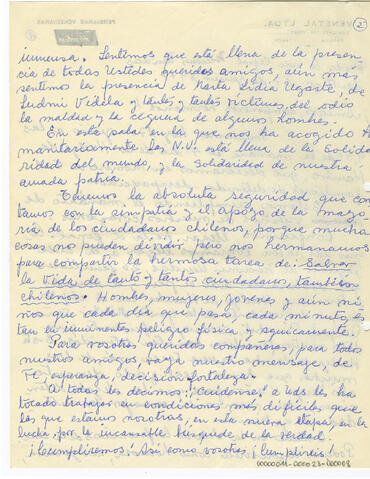 2
inmensa. Sentimos que está llena de la presen-
cia de todas Ustedes queridos amigos, aún más
sentimos la presencia de Marta Lidia Ugarte, de
Lumi Videla y tantos y tantas victimas, del odio
la maldad y la ceguera de algunos hombres.
En esta sala, en la que nos ha acogido
manitariamente las N.U. está llena de la Solida
ridad del mundo, y la Solidaridad de nuestra
amada patria.
Tenemos la absoluta seguridad que con
tamos con la simpatía y el apoyo de la mayo
ria de los ciudadanos chilenos, porque muchas
cosas no pueden dividir, pero nos hermanamos
para compartir la hermosa tarea de: Salvar
la Vida de tanto y tantos ciudadanos, también
chilenos. Hombres, mujeres, jovenes y aún ni
ños que cada día que pasa, cada minuto, es
tan en inminentes peligro física y siquicamente.
Para vosotras queridas compañeras, para todos
nuestros amigos, vaya nuestro mensaje, de
Fe, esperanza, decisión fortaleza.
A todas les decimos: ¡Cuídense! a uds. les ha
tocado trabajar en condiciones más difíciles que
las que estamos nosotras, en esta nueva etapa, en la
lucha, por la incansable búsqueda de la verdad.
¡Cumpliremos! Así como vosotras ¡Cumpliréis!
00000011-000023-000008